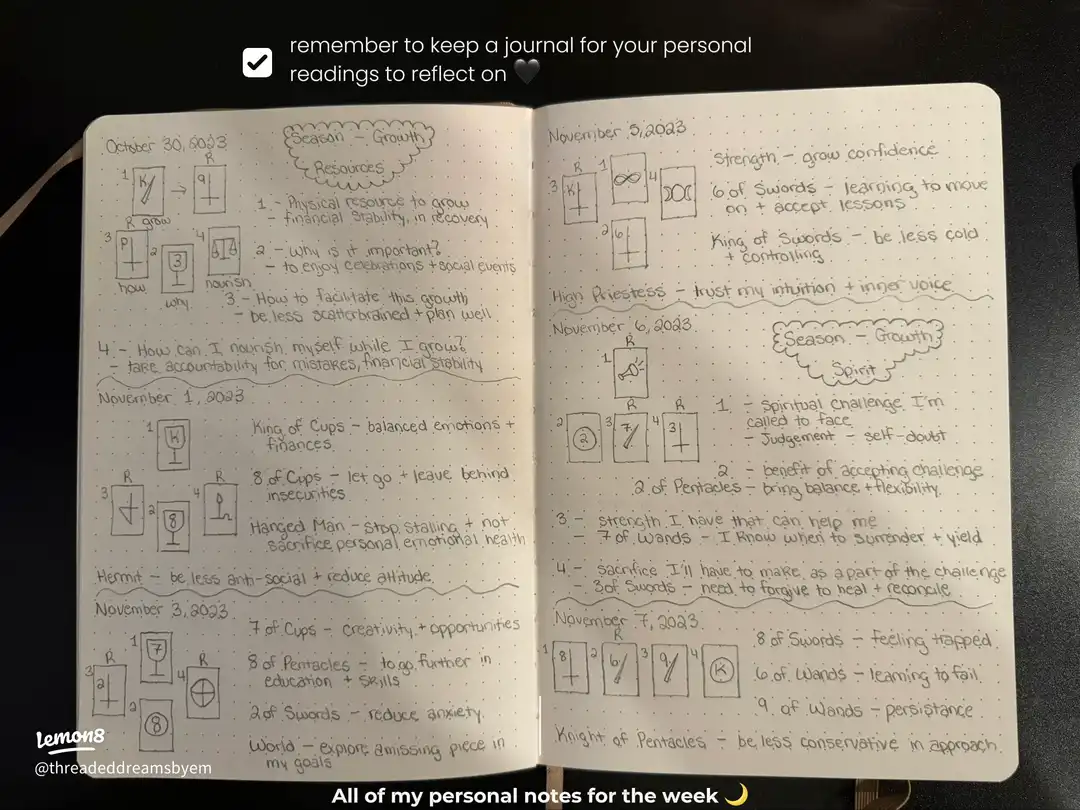 remember to keep a journal for your personal
readings to reflect on 🖤
October 30, 2023
Season - Growth
Resources
R
1
K
9
1 - Physical resource to grow
- financial stability, in recovery
R grow
3
P
2
3
4
how
why
nourish
2 - Why is it important?
- to enjoy celebrations + social events
3 - How to facilitate this growth
- be less scatterbrained + plan well
4 - How can I nourish myself while I grow?
- take accountability for mistakes, financial stability
November 1, 2023
1
K
King of Cups - balanced emotions +
finances
R
3
2
8
R
4
8 of Cups - let go + leave behind
insecurities
Hanged Man - stop stalling + not
sacrifice personal emotional health
Hermit - be less anti-social + reduce attitude
November 3, 2023
1
7
7 of Cups - creativity + opportunities
R
3
2
R
4
2
8
8 of Pentacles - to go further in
education + skills
2 of Swords - reduce anxiety
World - explore a missing piece in
my goals
November 5, 2023
R
3
K
1
4
2
6
Strength - grow confidence
6 of Swords - learning to move
on + accept lessons
King of Swords - be less cold
+ controlling
High Priestess - trust my intuition + inner voice
November 6, 2023
Season - Growth
Spirit
R
1
2
2
R
3
7
R
4
3
1 - Spiritual challenge I'm
called to face
- Judgement - self-doubt
2 - benefit of accepting challenge
2 of Pentacles - bring balance + flexibility
3 - strength I have that can help me
- 7 of Wands - I know when to surrender + yield
4 - sacrifice I'll have to make as a part of the challenge
- 3 of Swords - need to forgive to heal + reconcile
November 7, 2023
1
8
R
2
6
3
9
4
K
8 of Swords - feeling trapped
6 of Wands - learning to fail
9 of Wands - persistance
Knight of Pentacles - be less conservative in approach
Lemon8
@threadeddreamsbyem
All of my personal notes for the week 🌙